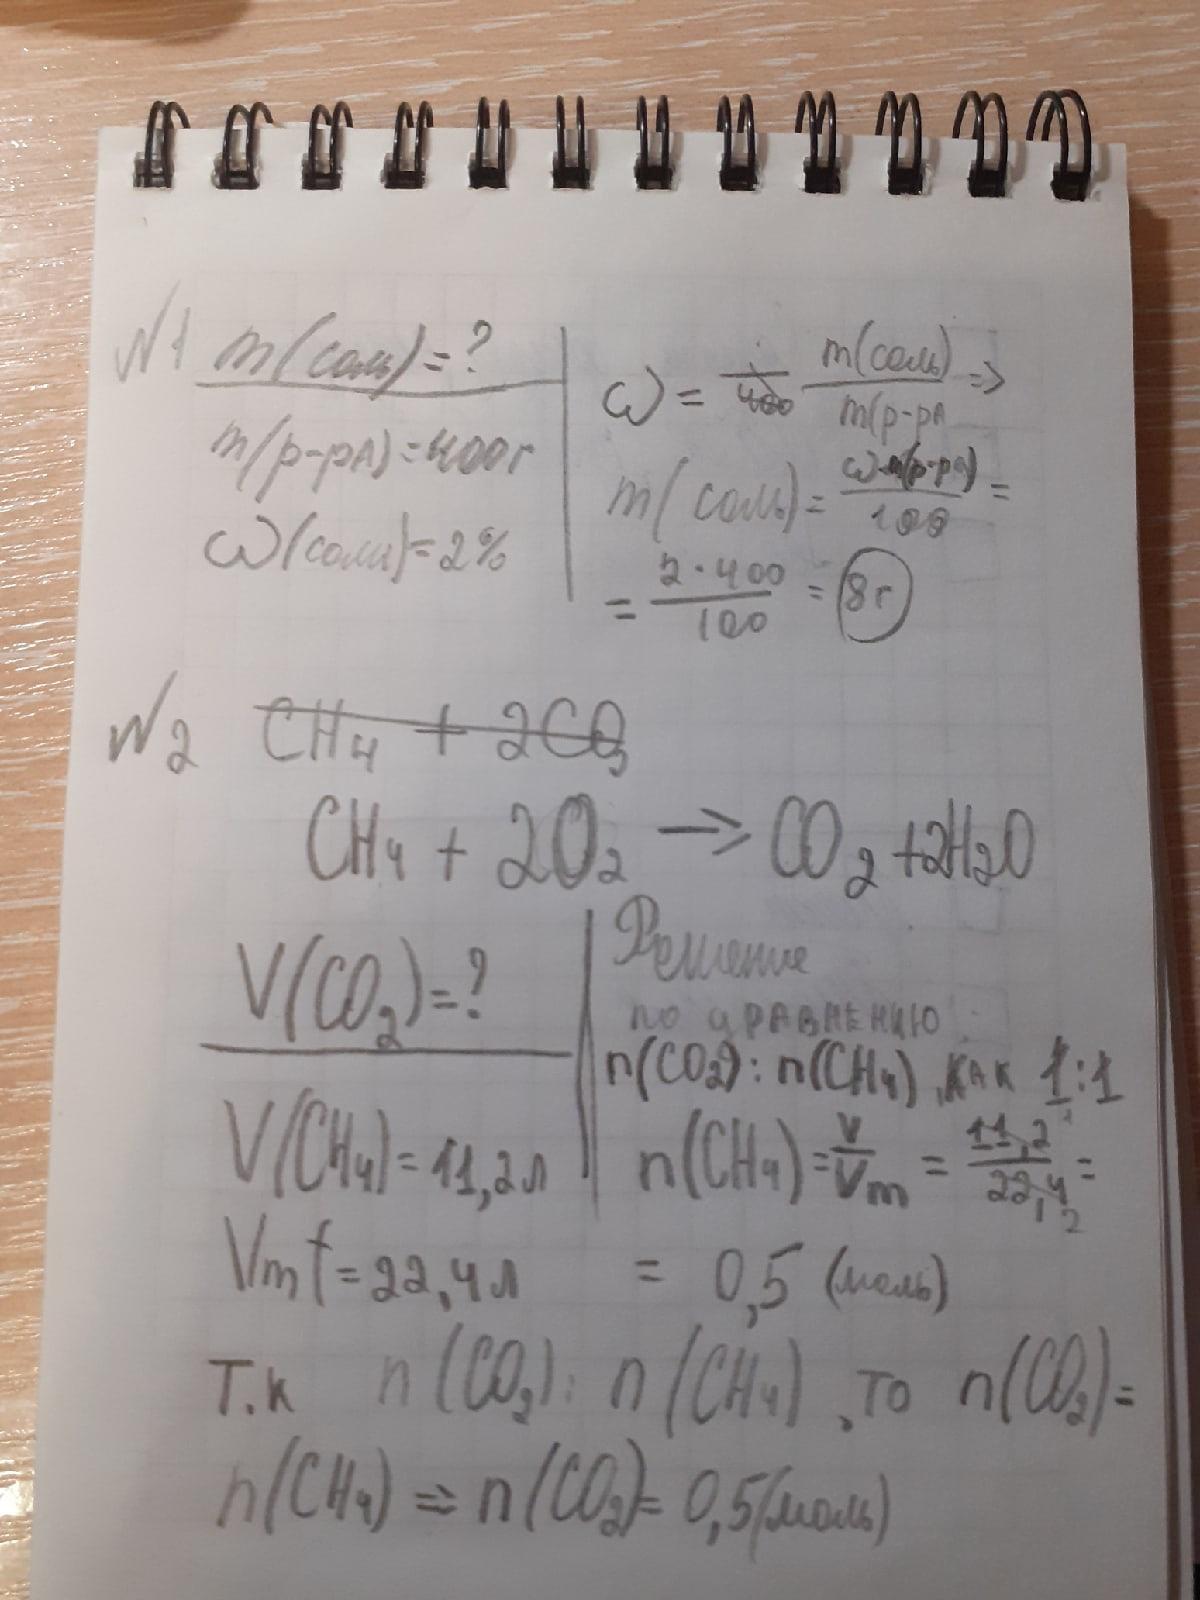 №1 m(соль)=?
m(р-рА)=400г
ω(соли)=2%
ω = 400 m(соль)/m(р-рА =>
m(соль)= ω·m(р-рА)/100 =
= 2·400/100 = 8г
№2 CH4 + 2CO2
CH4 + 2O2 → CO2 + 2H2O
V(CO2)=?
V(CH4)=11,2л
Vm =22,4л
Решение
по уравнению
n(CO2):n(CH4), как 1:1
n(CH4)= V/Vm = 11,2/22,4 =
= 0,5 (моль)
Т.к n(CO2): n(CH4), то n(CO2)=
n(CH4) => n(CO2)= 0,5(моль)